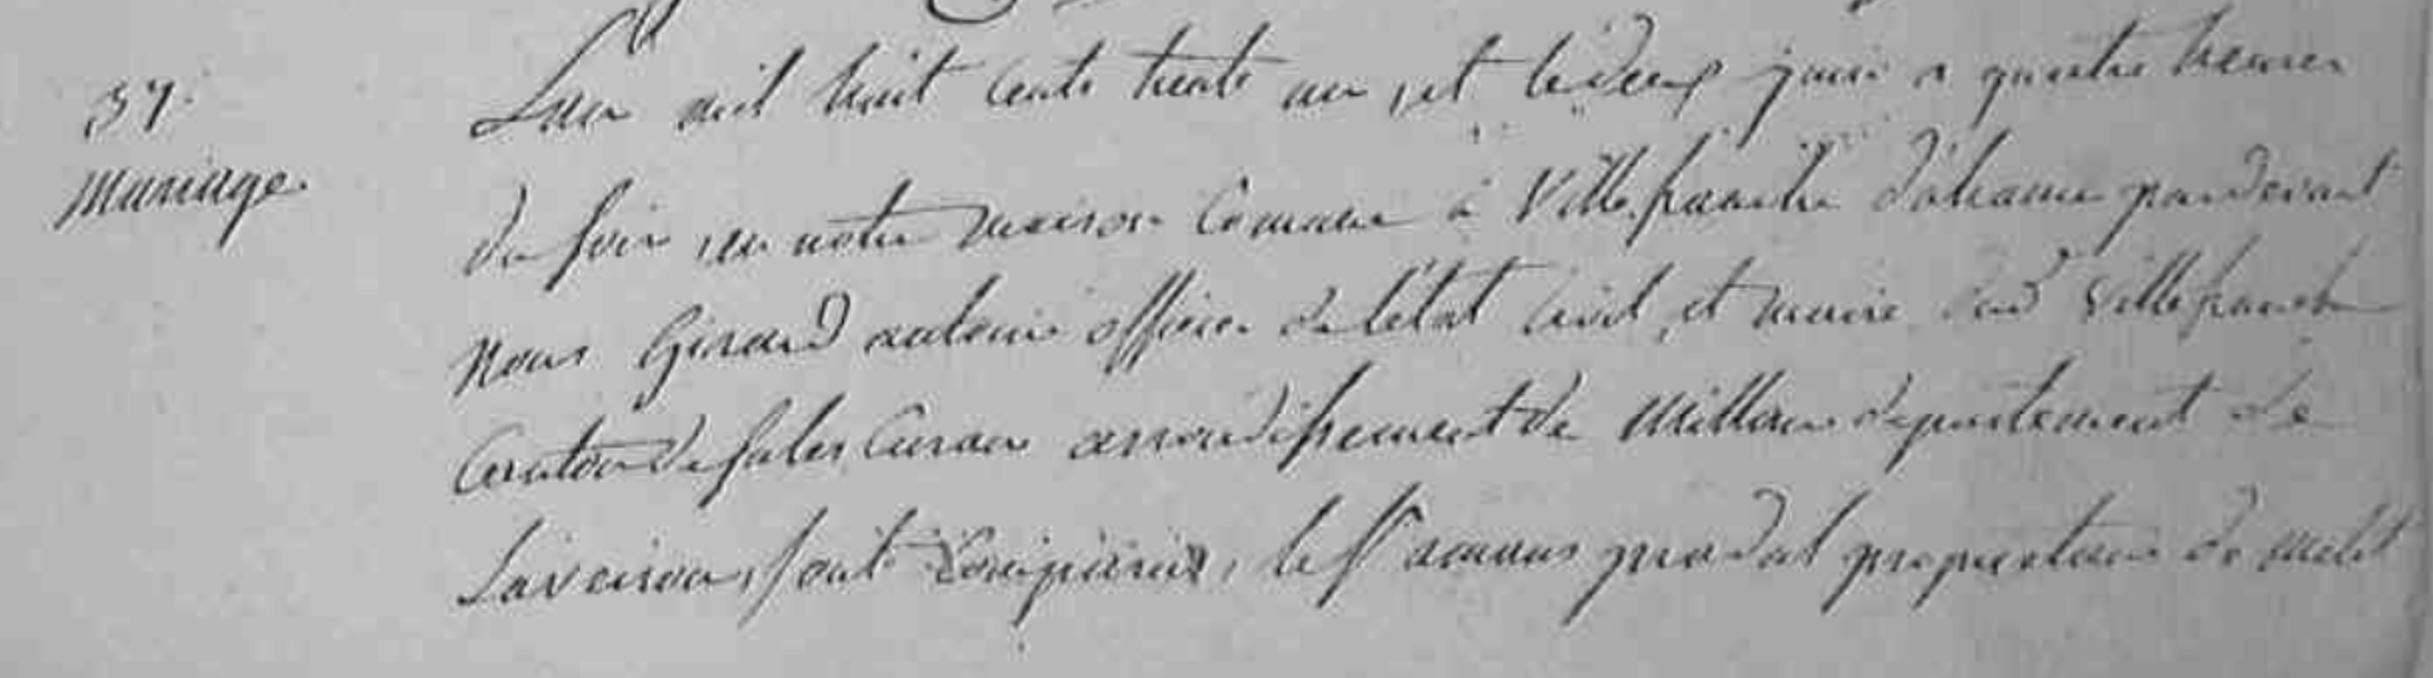 37.
Mariage
L'an mil huit cents trente un, et le deux juin a quatre heures
du soir, en notre maison Comune à Villefranche d'[...] pardevant
Nous Girard antoine officier de l'état Civil, et maire dud Villefranche
Canton de Sales Curan arrondissement de Millau département de
Laveiron, sont Comparus, le Sr amans pradal proprietaire de